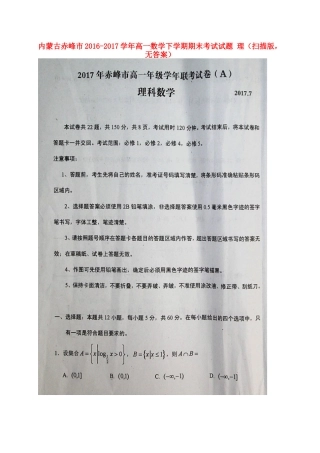 内蒙古赤峰市 2016-2017 学年高一数学下学期期末考试试题 理（扫描版，
无答案）
2017 年赤峰市高一年级学年联考试卷（A）
理科数学
2017.7
本试卷共 22 题，共 150 分，共 8 页，考试用时 120 分钟，考试结束后，将本试卷和
答题卡一并交回。考试范围：必修 1，必修 2，必修 4，必修 5。
注意事项：
1、答题前，考生先将自己的姓名、准考证号码填写清楚，将条形码准确粘贴条形码
区域内。
2、选择题答案必须使用 2B 铅笔填涂，非选择题答案使用 0.5 毫米黑色字迹的签字
笔书写，字体工整，笔迹清楚。
3、请按照题号顺序在答题卡各题目的答题区域内作答，超出答题区域书写的答案无
效；在草稿纸、试卷上答题无效。
4、作图可先使用铅笔画出，确定后必须用黑色字迹的签字笔描黑。
5、保持卡面清洁，不要折叠，不要弄破、弄皱，不准使用涂改液、修正带、刮纸刀。
一、选择题：本题共 12 小题，每小题 5 分，共 60 分。在每小题给出的四个选项中，只
有一项是符合题目要求的。
B={x|x≤1}，则 A∩B=
A. (0,1] B. (0,1) C. (-∞,-1) D. (-∞,-1]